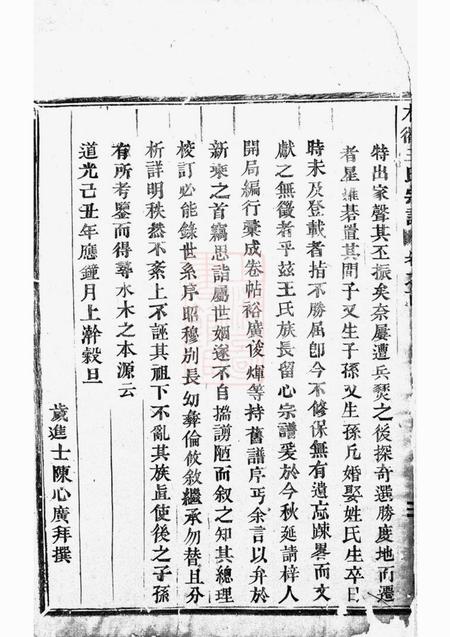 特出家聲其丕振矣奈屢遭兵燹之後探奇選勝度地而遷
者星羅碁置其間子又生子孫又生孫凡婚娶姓氏生卒日
時未及登載者指不勝屈卽今不修保無有遺忘踈畧而文
獻之無徵者乎玆王氏族長留心宗譜爰於今秋延請梓人
開局編行彚成卷帖裕廣俊煇等持舊譜序丐余言以弁於
新乘之首竊思誼屬世姻遂不自揣謭陋而叙之知其總理
校訂必能錄世系序昭穆別長幼彝倫攸敘繼承勿替且分
析詳明秩然不紊上不誣其祖下不亂其族眞使後之子孫
有所考鑒而得尋水木之本源云
道光己丑年應鐘月上澣穀旦
歲進士陳心廣拜撰